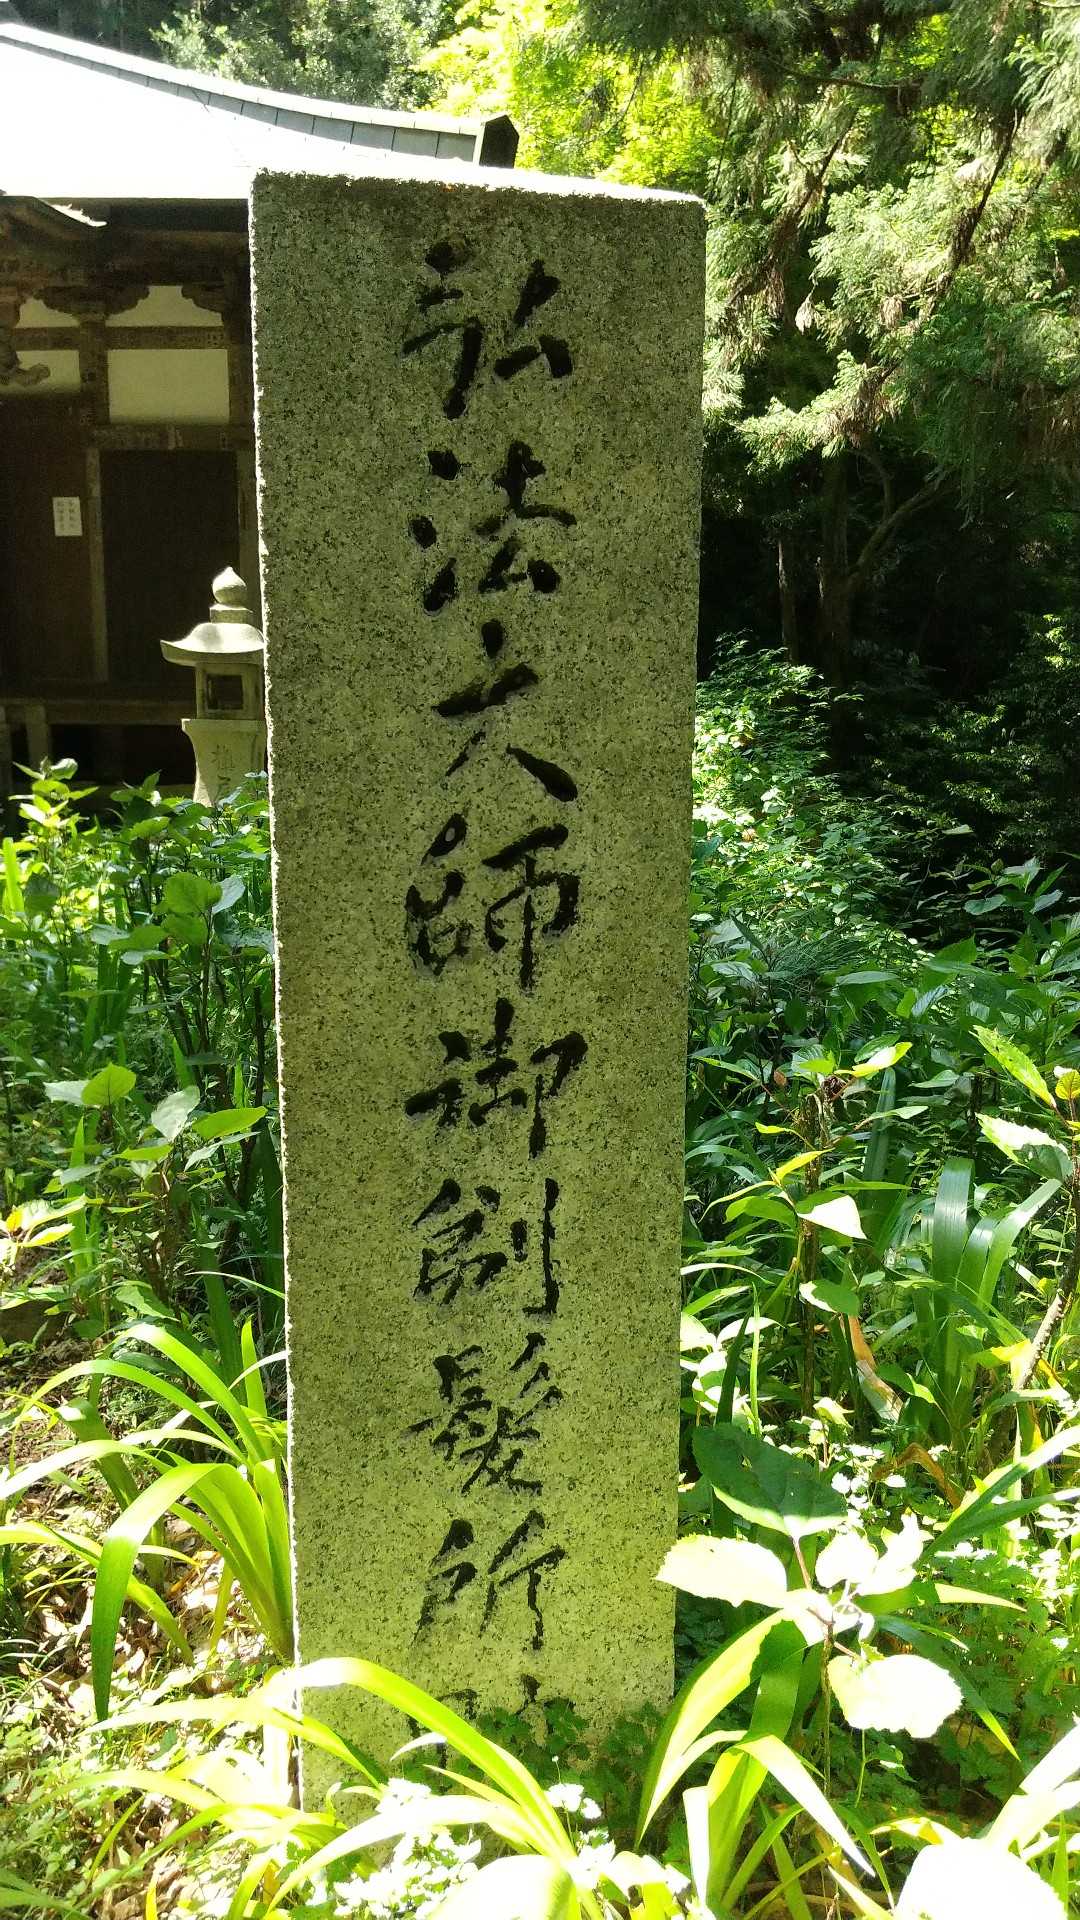 弘法大師御剃髪所